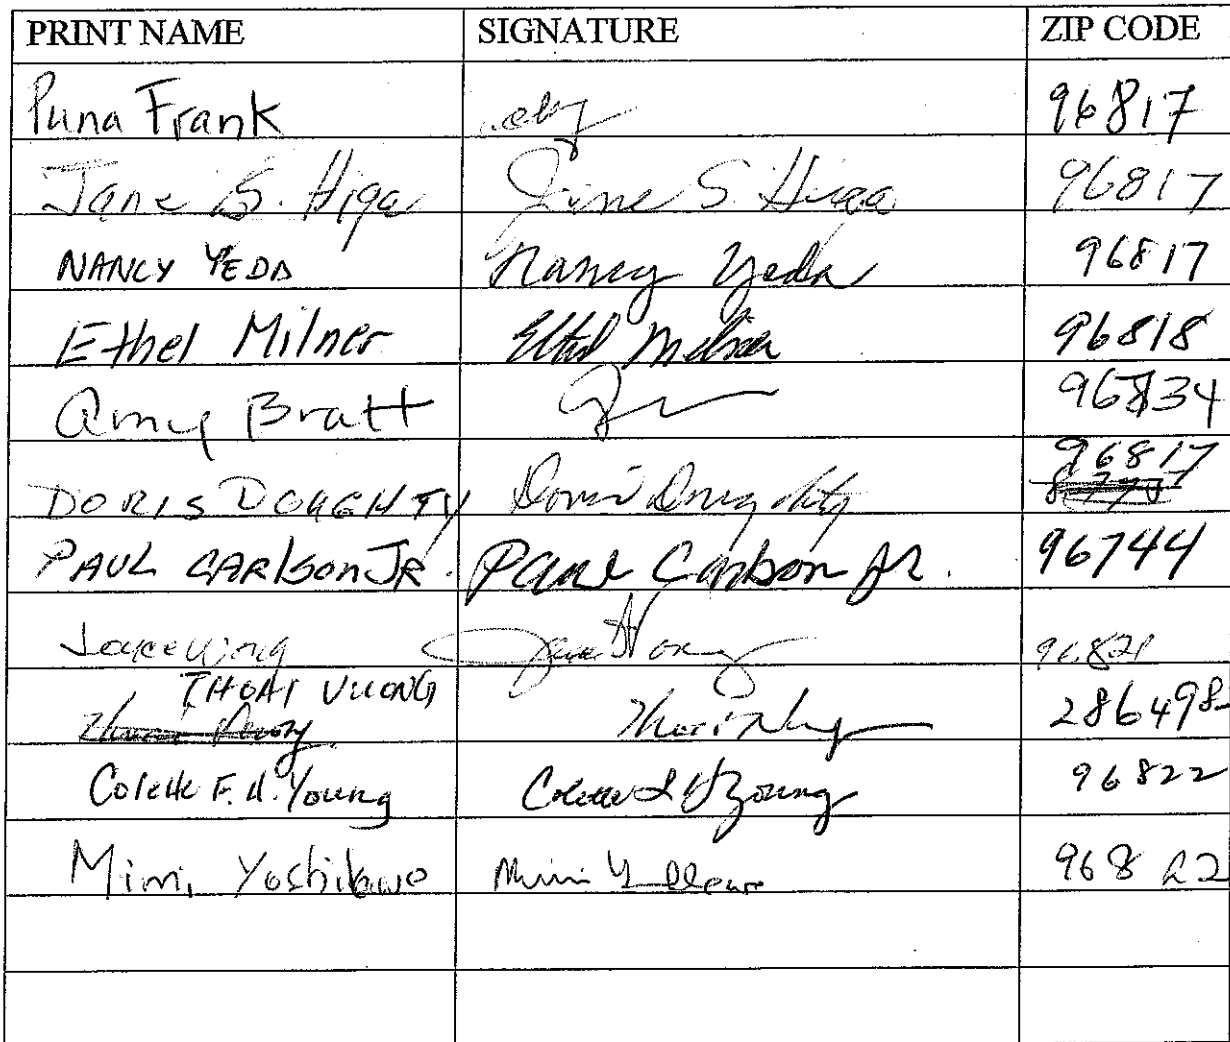 PRINT NAME SIGNATURE ZIP CODE
Puna Frank 96817
Jane S. Higa Jane S. Higa 96817
NANCY YEDA Nancy Yeda 96817
Ethel Milner Ethel Milner 96818
Amy Bratt 96734
96817
DORIS DOUGHTY Doris Doughty
PAUL CARlson JR. Paul Carlson Jr. 96744
Joyce Wong Joyce Wong 96821
THOAI VUONG 286498
Colette F. H. Young Colette F H Young 96822
Mimi 96822